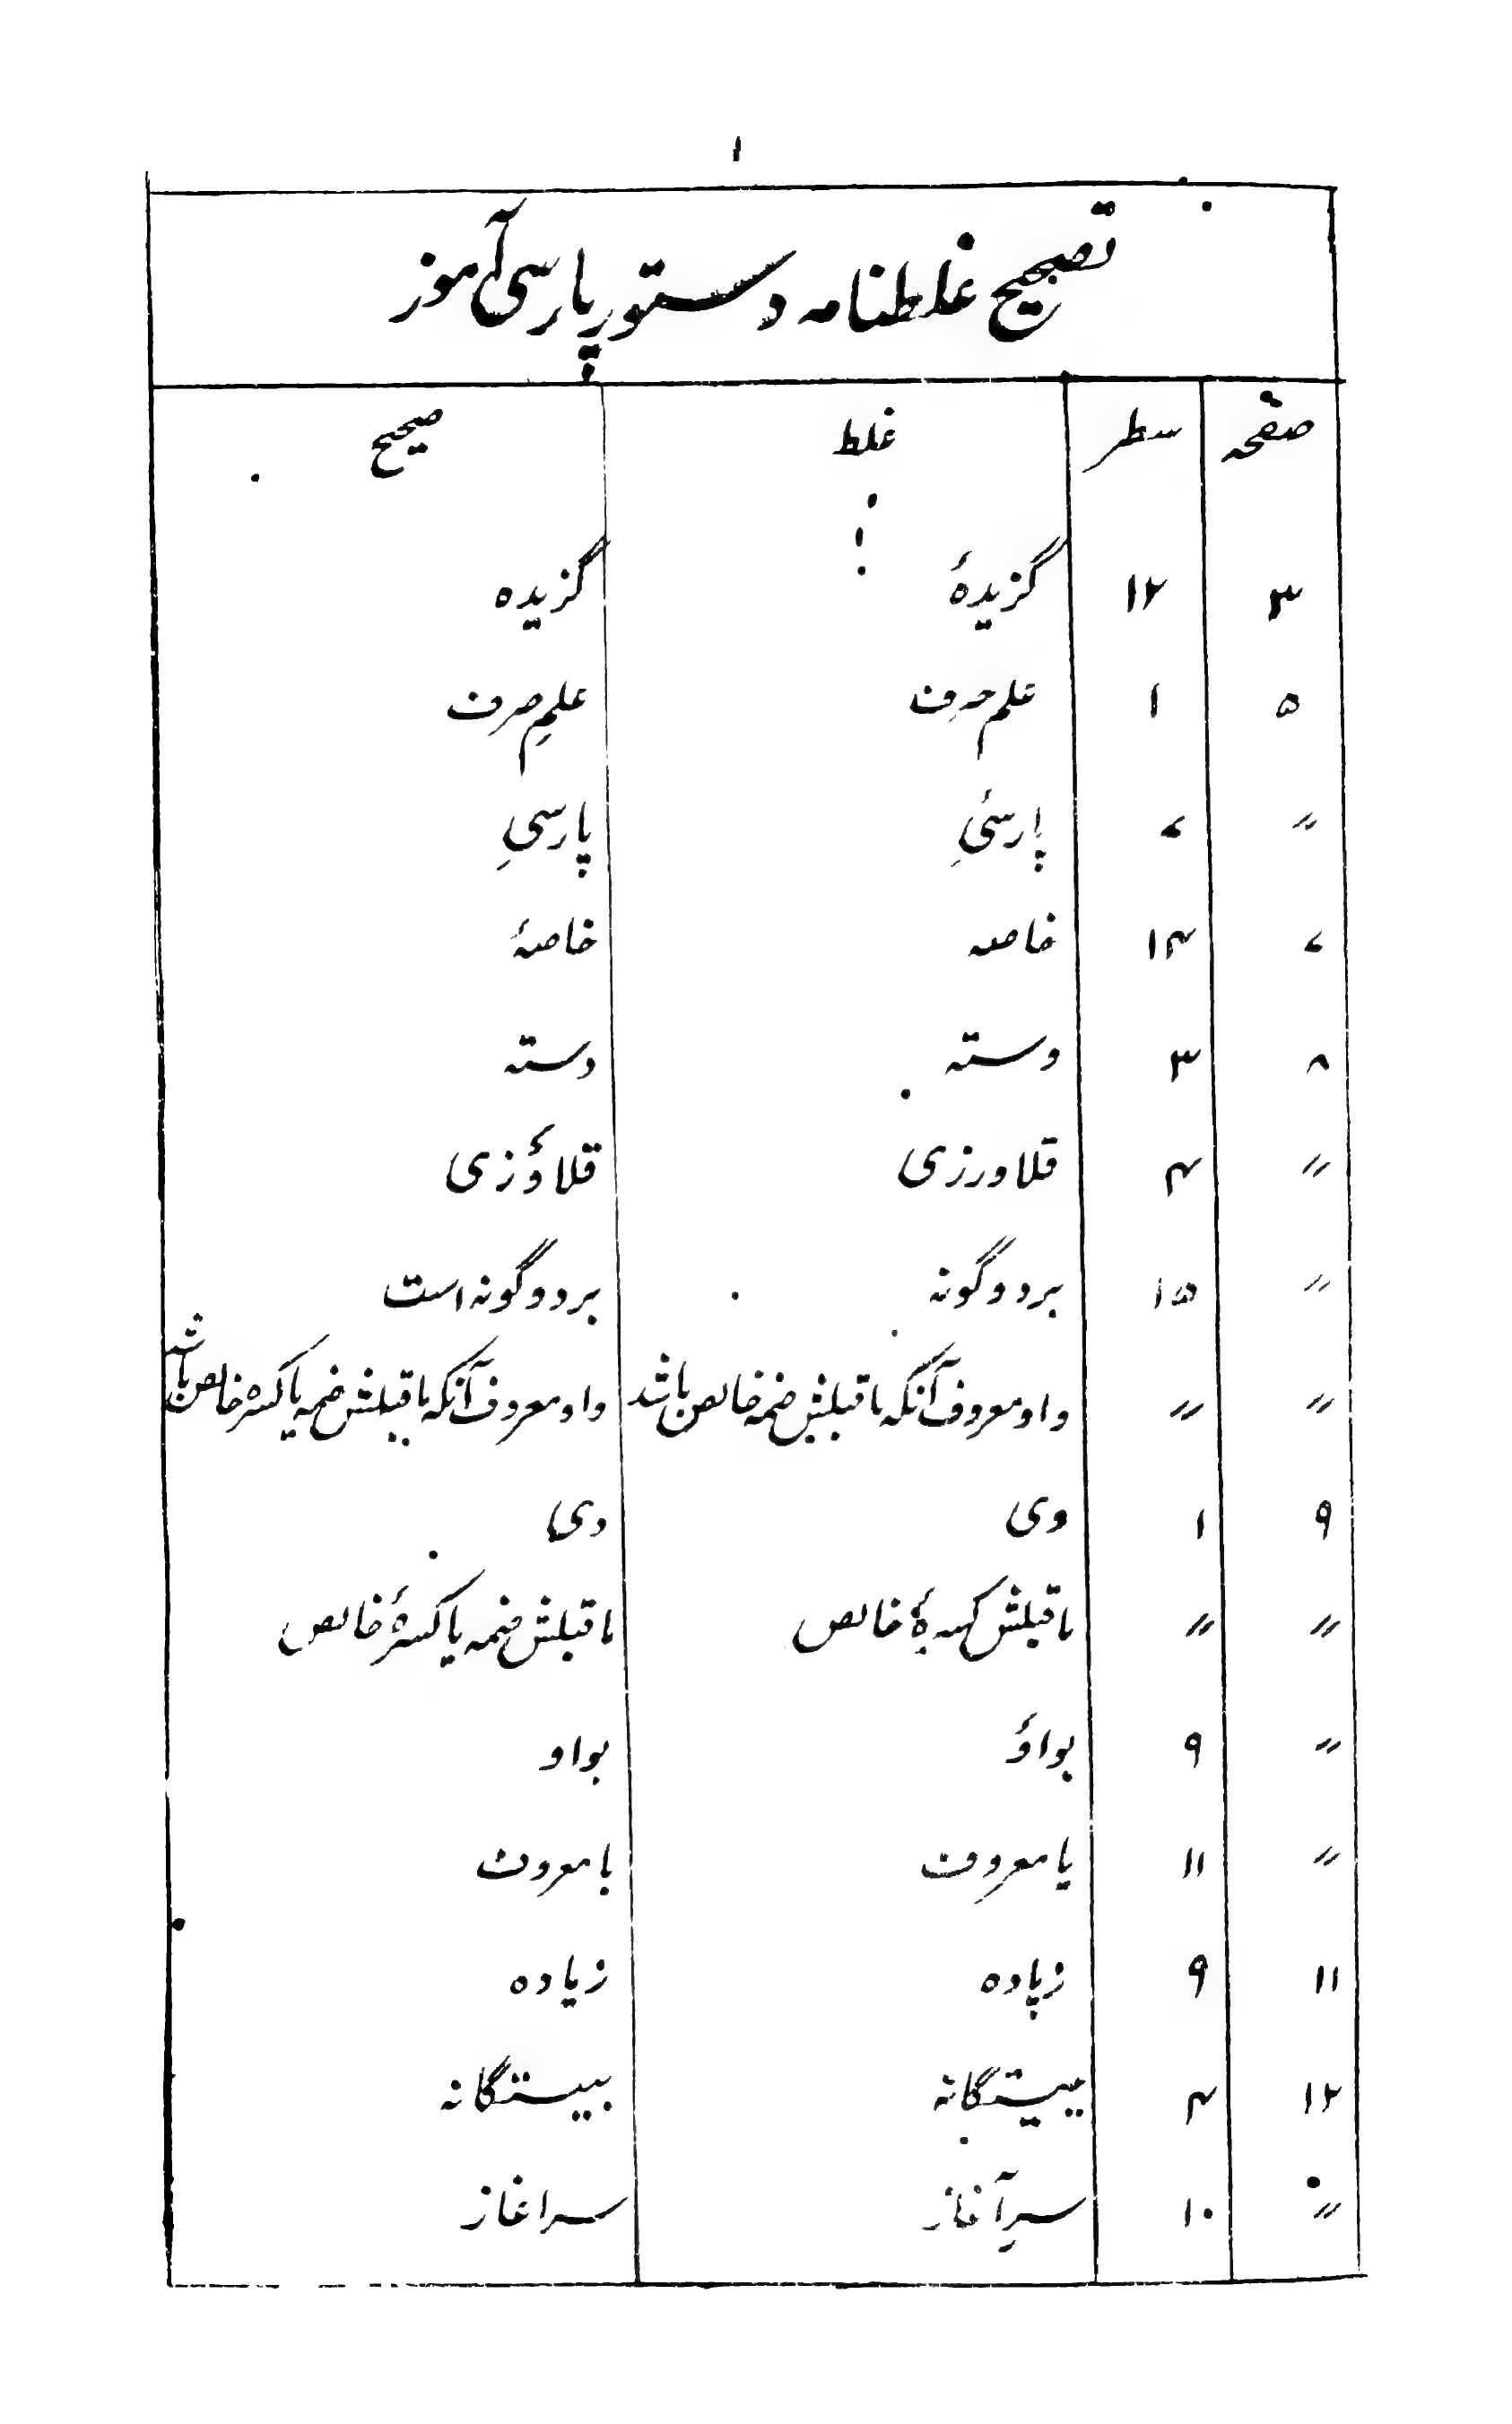 ۱
تصحیح غلطنامہ دستور پارسی آموز
صفحہ سطر غلط صحیح
۳ ۱۲ گزیدۂ گزیدہ
۵ ۱ علم حرف علمِ صرف
〃 ۷ پارسیٔ پارسیِ
۷ ۱۴ خاصہ خاصۂ
۸ ۳ وستہ دستہ
〃 ۴ قلاورزی قلاؤزی
〃 ۱۵ بردوگونہ بردوگونہ است
〃 〃 واو معروف آنکہ ماقبلش ضمہ خالص باشد واو معروف آنکہ ماقبلش ضمہ یا کسرہ خالص باشد
۹ ۱ وی دی
〃 〃 ماقبلش کسرۂ خالص ماقبلش ضمہ یا کسرۂ خالص
〃 ۹ بواؤ بواو
〃 ۱۱ یا معروف با معروف
۱۱ ۹ زپادہ زیادہ
۱۲ ۴ بیشتگانہ بیستگانہ
〃 ۱۰ سرِآغاز سراغاز